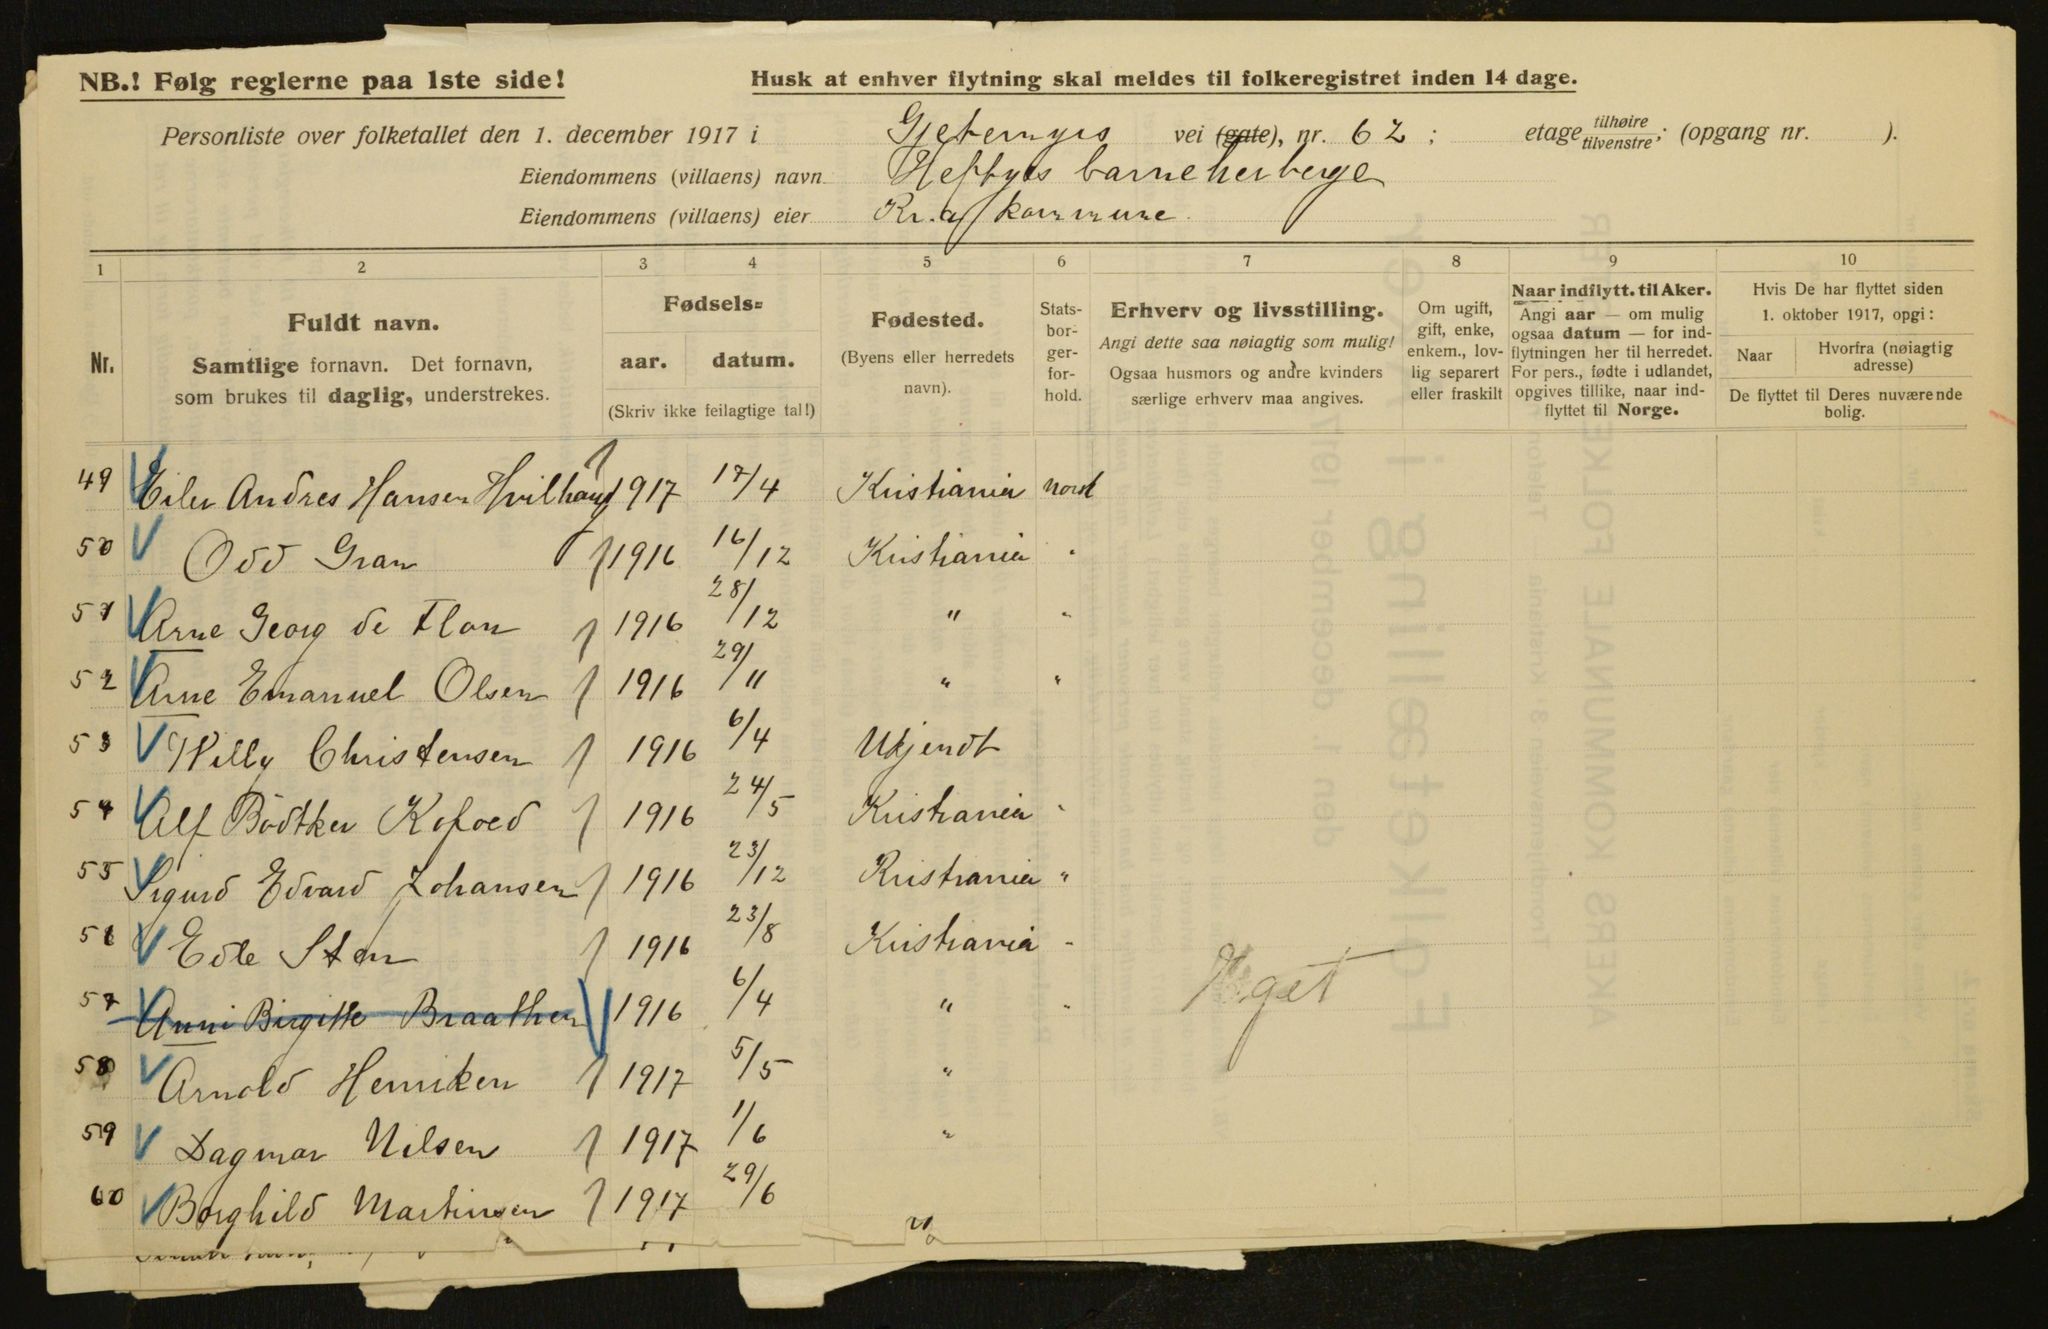 NB.! Følg reglerne paa 1ste side!
Husk at enhver flytning skal meldes til folkeregistret inden 14 dage.
Personliste over folketallet den 1. december 1917 i Gjetemyrs vei (gate), nr. 62; etage tilhøire tilvenstre; (opgang nr. ).
Eiendommens (villaens) navn Heftyes barneherberge
Eiendommens (villaens) eier Kr.a kommune
1 2 3 4 5 6 7 8 9 10
Nr.
Fuldt navn.
Samtlige fornavn. Det fornavn,
som brukes til daglig, understrekes.
Fødsels-
aar. datum.
(Skriv ikke feilagtige tal!)
Fødested.
(Byens eller herredets
navn).
Stats-
bor-
ger-
for-
hold.
Erhverv og livsstilling.
Angi dette saa nøiagtig som mulig!
Ogsaa husmors og andre kvinders
særlige erhverv maa angives.
Om ugift,
gift, enke,
enkem., lov-
lig separert
eller fraskilt
Naar indflytt. til Aker.
Angi aar — om mulig
ogsaa datum — for ind-
flytningen her til herredet.
For pers., fødte i utlandet,
opgives tillike, naar ind-
flyttet til Norge.
Hvis De har flyttet siden
1. oktober 1917, opgi:
Naar
Hvorfra (nøiagtig
adresse)
De flyttet til Deres nuværende
bolig.
49 Eiler Andres Hansen Hvilhaug 1917 17/4 Kristiania norsk
50 Odd Gran 1916 16/12 Kristiania "
51 Arne Georg de Flon 1916 28/12 " "
52 Arne Emanuel Olsen 1916 29/11 " "
53 Willy Christensen 1916 6/4 Ukjendt
54 Alf Bödtker Kofoed 1916 24/5 Kristiania "
55 Sigurd Edvard Johansen 1916 23/12 Kristiania "
56 Edle Sten 1916 23/8 Kristiania "
57 Anni Birgitte Braathen 1916 6/4 " "
58 Arnold Henriksen 1917 5/5 "
59 Dagmar Nilsen 1917 1/6 "
60 Borghild Martinsen 1917 29/6